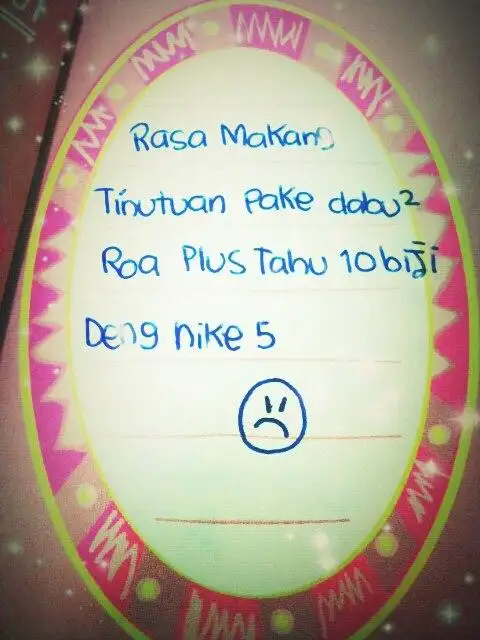 Rasa Makang
Tinutuan Pake dabu²
Roa Plus Tahu 10 biji
Deng nike 5